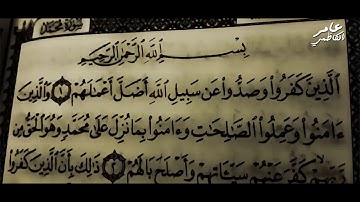 سورة محمد
عامر
الكاظمي
بِسْمِ اللَّهِ الرَّحْمَٰنِ الرَّحِيمِ
الَّذِينَ كَفَرُوا وَصَدُّوا عَن سَبِيلِ اللَّهِ أَضَلَّ أَعْمَالَهُمْ ١ وَالَّذِينَ
ءَامَنُوا وَعَمِلُوا الصَّالِحَاتِ وَءَامَنُوا بِمَا نُزِّلَ عَلَىٰ مُحَمَّدٍ وَهُوَ الْحَقُّ مِن
رَّبِّهِمْ كَفَّرَ عَنْهُمْ سَيِّئَاتِهِمْ وَأَصْلَحَ بَالَهُمْ ٢ ذَٰلِكَ بِأَنَّ الَّذِينَ كَفَرُوا